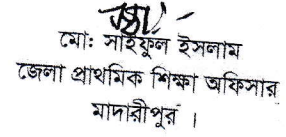 মো: সাইফুল ইসলাম
জেলা প্রাথমিক শিক্ষা অফিসার
মাদারীপুর ।